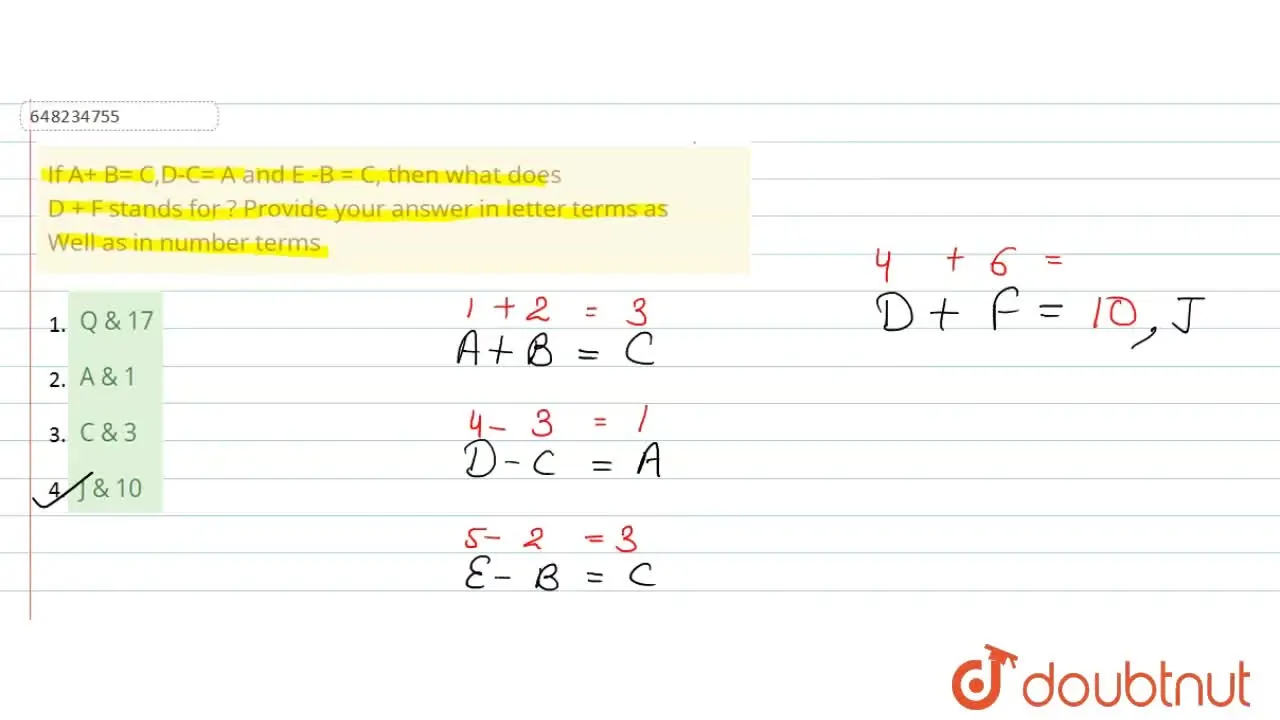 648234755
If A+ B= C,D-C= A and E -B = C, then what does
D + F stands for ? Provide your answer in letter terms as
Well as in number terms
1. Q & 17
2. A & 1
3. C & 3
4. J & 10
1 + 2 = 3
A + B = C
4 - 3 = 1
D - C = A
5 - 2 = 3
E - B = C
4 + 6 =
D + F = 10, J
doubtnut